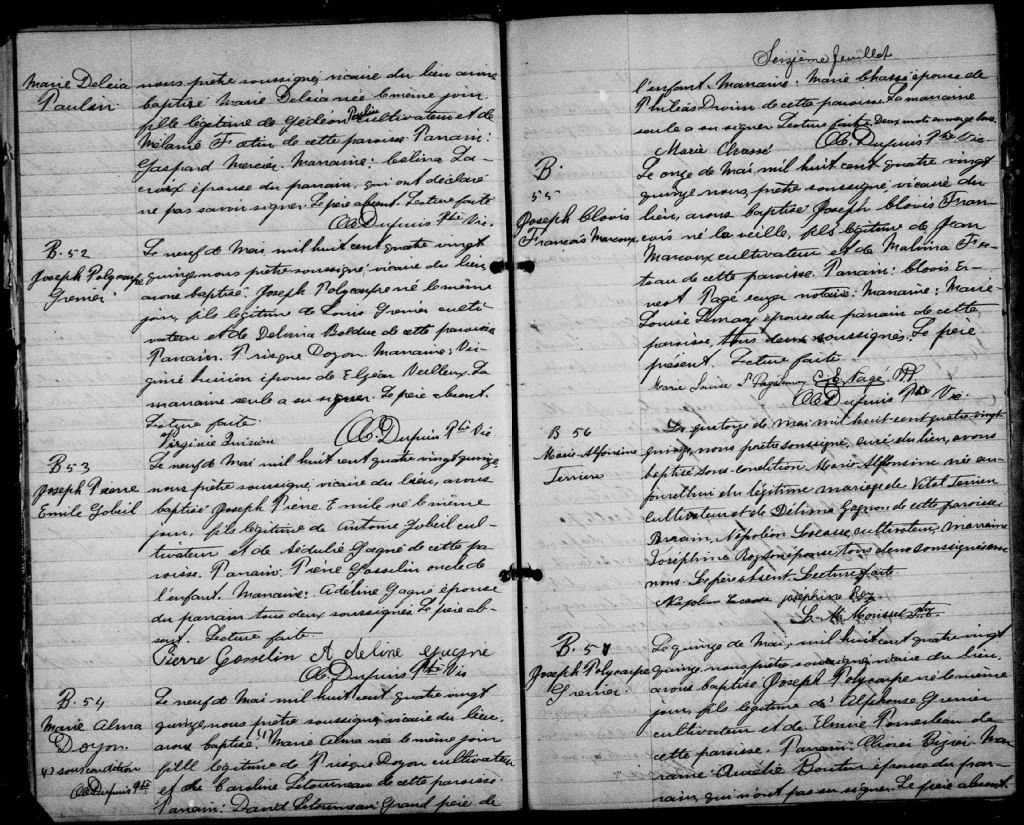 Marie Delcia
Paulin
nous prêtre soussigné, vicaire du lieu avons
baptisé Marie Delcia née le même jour
fille légitime de Gédéon Paulin cultivateur et de
Mélanie Fortin de cette paroisse. Parrain:
Gaspard Mercier, Marraine: Celina La-
croix épouse du parrain, qui ont déclaré
ne pas savoir signer. Le père absent. Lecture faite
A Dupuis Ptre Vic.
B. 52
Joseph Polycarpe
Grenier
Le neuf de Mai mil huit cent quatre vingt
quinze, nous prêtre soussigné vicaire du lieu,
avons baptisé Joseph Polycarpe né le même
jour, fils légitime de Louis Grenier culti-
vateur et de Delvina Bolduc de cette paroisse
Parrain. Prisque Doyon. Marraine: Vir-
ginie Quirion épouse de Elzéar Veilleux. La
marraine seule a su signer. Le père absent.
Lecture faite
Virginie Quirion A Dupuis Ptre Vic
B 53
Joseph Pierre
Emile Gobeil
Le neuf de Mai mil huit cent quatre vingt quinze,
nous prêtre soussigné, vicaire du lieu, avons
baptisé Joseph Pierre Emile né le même
jour, fils légitime de Antoine Gobeil cul-
tivateur et de Sédulie Gagné de cette pa-
roisse. Parrain: Pierre Gosselin oncle de
l'enfant. Marraine: Adéline Gagné épouse
du parrain tous deux soussignés. Le père ab-
sent. Lecture faite
Pierre Gosselin Adeline gagne
A Dupuis Ptre Vic
B. 54
Marie Alma
Doyon
(1) sous condition
A Dupuis Ptre
Le neuf de Mai mil huit cent quatre vingt
quinze, nous prêtre soussigné, vicaire du lieu,
avons baptisé (1) Marie Alma née le même jour
fille légitime de Prisque Doyon cultivateur
et de Caroline Létourneau de cette paroisse.
Parrain: David Létourneau Grand père de
Seizième feuillet
l'enfant. Marraine: Marie Chassé épouse de
Philéas Drouin de cette paroisse. La marraine
seule a su signer. Lecture faite. Deux mots en marge bons
Marie Chassé A Dupuis Ptre Vic
B.
55
Joseph Clovis
François Marcoux
Le onze de Mai, mil huit cent quatre vingt
quinze, nous, prêtre soussigné, vicaire du
lieu, avons baptisé Joseph Clovis Fran-
çois né la veille, fils légitime de Jean
Marcoux cultivateur et de Malvina Fec-
teau de cette paroisse. Parrain: Clovis Er-
nest Pagé écuyer notaire: Marraine: Marie
Louise Lemay épouse du parrain de cette
paroisse, tous deux soussignés. Le père
présent. Lecture faite
Marie Louise Pagé Lemay C. E. Pagé
A Dupuis Ptre Vic.
B 56
Marie Alfonsine
Terrien
Le quatorze de mai mil huit cent quatre-vingt
quinze, nous prêtre soussigné, curé du lieu, avons
baptisé sous-condition Marie Alfonsine née au-
jourd'hui du légitime mariage de Vital Terrien
cultivateur et de Délima Gagnon de cette paroisse.
Parrain, Napoléon Lacasse, cultivateur, marraine
Joséphine Roy son épouse tous deux soussignés avec
nous. Le père absent. Lecture faite.
Napoleon Lacasse josephine Roy
B. 57
Joseph Polycarpe
Grenier
Le quinze de Mai, mil huit cent quatre vingt
quinze, nous prêtre soussigné, vicaire du lieu,
avons baptisé Joseph Polycarpe né le même
jour, fils légitime d'Alphonse Grenier
cultivateur et de Elmire Pomerleau de
cette paroisse. Parrain: Olivier Mar
raine: Aurélie Boutin épouse du par-
rain, qui n'ont pas su signer. Le père absent.